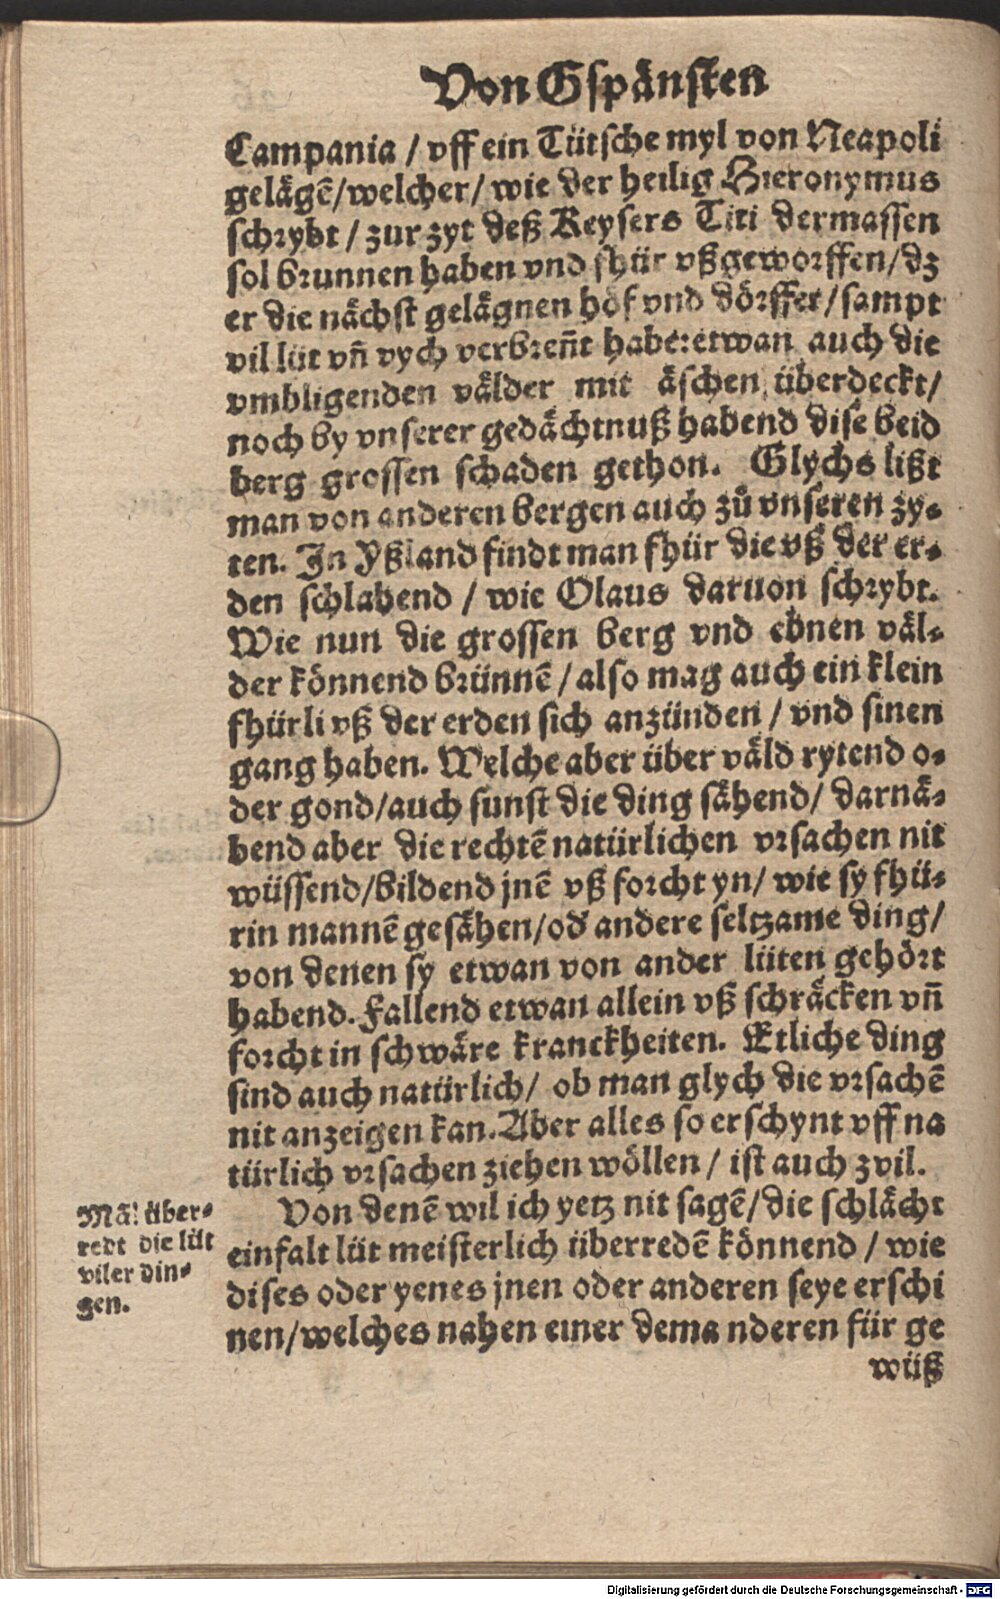 Von Gspånsten
Campania / vff ein Tütsche myl von Neapoli
gelågē/welcher/ wie der heilig Hieronymus
schrybt / zur zyt deß Keysers Titi dermassen
sol brunnen haben vnd fhür vßgeworffen/dz
er die nåchst gelågnen hôf vnd dôrffer/sampt
vil lüt vñ vych verbreñt habe: etwan auch die
vmbligenden vålder mit åschen überdeckt/
noch by vnserer gedåchtnuß habend dise beid
berg grossen schaden gethon. Glychs lißt
man von anderen bergen auch zů vnseren zy-
ten. In Yßland findt man fhür die vß der er-
den schlahend / wie Olaus daruon schrybt.
Wie nun die grossen berg vnd ebnen vål-
der kônnend brünnē / also mag auch ein klein
fhürli vß der erden sich anzünden / vnd sinen
gang haben. Welche aber über våld rytend o-
der gond/auch sunst die ding såhend/ darnå-
bend aber die rechtē natürlichen vrsachen nit
wüssend/bildend jnē vß forcht yn/ wie sy fhü-
rin mannē gesåhen/od' andere seltzame ding/
von denen sy etwan von ander lüten gehôrt
habend. Fallend etwan allein vß schråcken vñ
forcht in schwåre kranckheiten. Etliche ding
sind auch natürlich/ ob man glych die vrsachē
nit anzeigen kan. Aber alles so erschynt vff na
türlich vrsachen ziehen wôllen / ist auch zvil.
Von denē wil ich yetz nit sagē/die schlåcht
einfalt lüt meisterlich überredē kônnend / wie
dises oder yenes jnen oder anderen seye erschi
nen/welches nahen einer dema nderen für ge
wüß
Mā über-
redt die lüt
viler din-
gen.
Digitalisierung gefördert durch die Deutsche Forschungsgemeinschaft - DFG